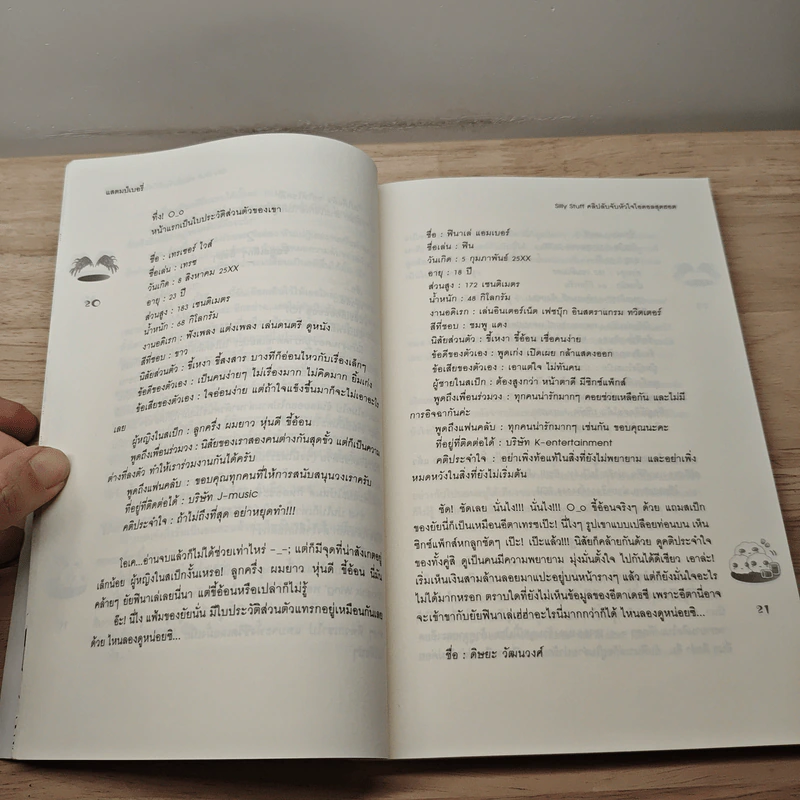 แสตมป์เบอรี่
ทึ่ง! O_o
หน้าแรกเป็นใบประวัติส่วนตัวของเขา
ชื่อ : เทรเชอร์ ไวส์
ชื่อเล่น : เทรซ
วันเกิด : 8 สิงหาคม 25XX
อายุ : 23 ปี
ส่วนสูง : 183 เซนติเมตร
น้ำหนัก : 68 กิโลกรัม
งานอดิเรก : ฟังเพลง แต่งเพลง เล่นดนตรี ดูหนัง
สีที่ชอบ : ขาว
นิสัยส่วนตัว : ขี้เหงา ขี้สงสาร บางทีก็อ่อนไหวกับเรื่องเล็กๆ
ข้อดีของตัวเอง : เป็นคนง่ายๆ ไม่เรื่องมาก ไม่คิดมาก ยิ้มเก่ง
ข้อเสียของตัวเอง : ใจอ่อนง่าย แต่ถ้าใจแข็งขึ้นมาก็จะไม่เอาอะไร
เลย
ผู้หญิงในสเป็ก : ลูกครึ่ง ผมยาว หุ่นดี ขี้อ้อน
พูดถึงเพื่อนร่วมวง : นิสัยของเราสองคนต่างกันสุดขั้ว แต่ก็เป็นความ
ต่างที่ลงตัว ทำให้เราร่วมงานกันได้ครับ
พูดถึงแฟนคลับ : ขอบคุณทุกคนที่ให้การสนับสนุนวงเราครับ
ที่อยู่ที่ติดต่อได้ : บริษัท J-music
คติประจำใจ : ถ้าไม่ถึงที่สุด อย่าหยุดทำ!!!
โอเค...อ่านจบแล้วก็ไม่ได้ช่วยเท่าไหร่ -_-; แต่ก็มีจุดที่น่าสังเกตอยู่
เล็กน้อย ผู้หญิงในสเป็กงั้นเหรอ! ลูกครึ่ง ผมยาว หุ่นดี ขี้อ้อน นี่มัน
คล้ายๆ ยัยฟินาเล่เลยนี่นา แต่ขี้อ้อนหรือเปล่าก็ไม่รู้
อ๊ะ! นี่ไง แฟ้มของยัยนั่น มีใบประวัติส่วนตัวแทรกอยู่เหมือนกันเลย
ด้วย ไหนลองดูหน่อยซิ...
20
Silly Stuff คลิปลับจับหัวใจไอดอลสุดฮอต
ชื่อ : ฟินาเล่ แอมเบอร์
ชื่อเล่น : ฟิน
วันเกิด : 5 กุมภาพันธ์ 25XX
อายุ : 18 ปี
ส่วนสูง : 172 เซนติเมตร
น้ำหนัก : 48 กิโลกรัม
งานอดิเรก : เล่นอินเตอร์เน็ต เฟซบุ๊ก อินสตราแกรม ทวิตเตอร์
สีที่ชอบ : ชมพู แดง
นิสัยส่วนตัว : ขี้เหงา ขี้อ้อน เชื่อคนง่าย
ข้อดีของตัวเอง : พูดเก่ง เปิดเผย กล้าแสดงออก
ข้อเสียของตัวเอง : เอาแต่ใจ ไม่ทันคน
ผู้ชายในสเป็ก : ต้องสูงกว่า หน้าตาดี มีซิกซ์แพ็กส์
พูดถึงเพื่อนร่วมวง : ทุกคนน่ารักมากๆ คอยช่วยเหลือกัน และไม่มี
การอิจฉากันค่ะ
พูดถึงแฟนคลับ : ทุกคนน่ารักมากๆ เช่นกัน ขอบคุณนะคะ
ที่อยู่ที่ติดต่อได้ : บริษัท K-entertainment
คติประจำใจ : อย่าเพิ่งท้อแท้ในสิ่งที่ยังไม่พยายาม และอย่าเพิ่ง
หมดหวังในสิ่งที่ยังไม่เริ่มต้น
ชัด! ชัดเลย นั่นไง!!! นั่นไง!!! O_o ขี้อ้อนจริงๆ ด้วย แถมสเป็ก
ของยัยนี่ก็เป็นเหมือนอีตาเทรซเป๊ะ! นี่ไงๆ รูปเขาแบบเปลือยท่อนบน เห็น
ซิกซ์แพ็กส์หกลูกชัดๆ เป๊ะ! เป๊ะแล้ว!!! นิสัยก็คล้ายกันด้วย ดูคติประจำใจ
ของทั้งคู่สิ ดูเป็นคนมีความพยายาม มุ่งมั่นตั้งใจ ไปกันได้ดีเชียว เอาล่ะ!
เริ่มเห็นเงินสามล้านลอยมาแปะอยู่บนหน้ารางๆ แล้ว แต่ก็ยังมั่นใจอะไร
ไม่ได้มากหรอก ตราบใดที่ยังไม่เห็นข้อมูลของอีตาเดอซี เพราะอีตานี่อาจ
จะเข้าขากับยัยฟินาเล่เฮ่ฮ่าอะไรนี่มากกว่าก็ได้ ไหนลองดูหน่อยซิ...
ชื่อ : ดิษยะ วัฒนวงศ์
21